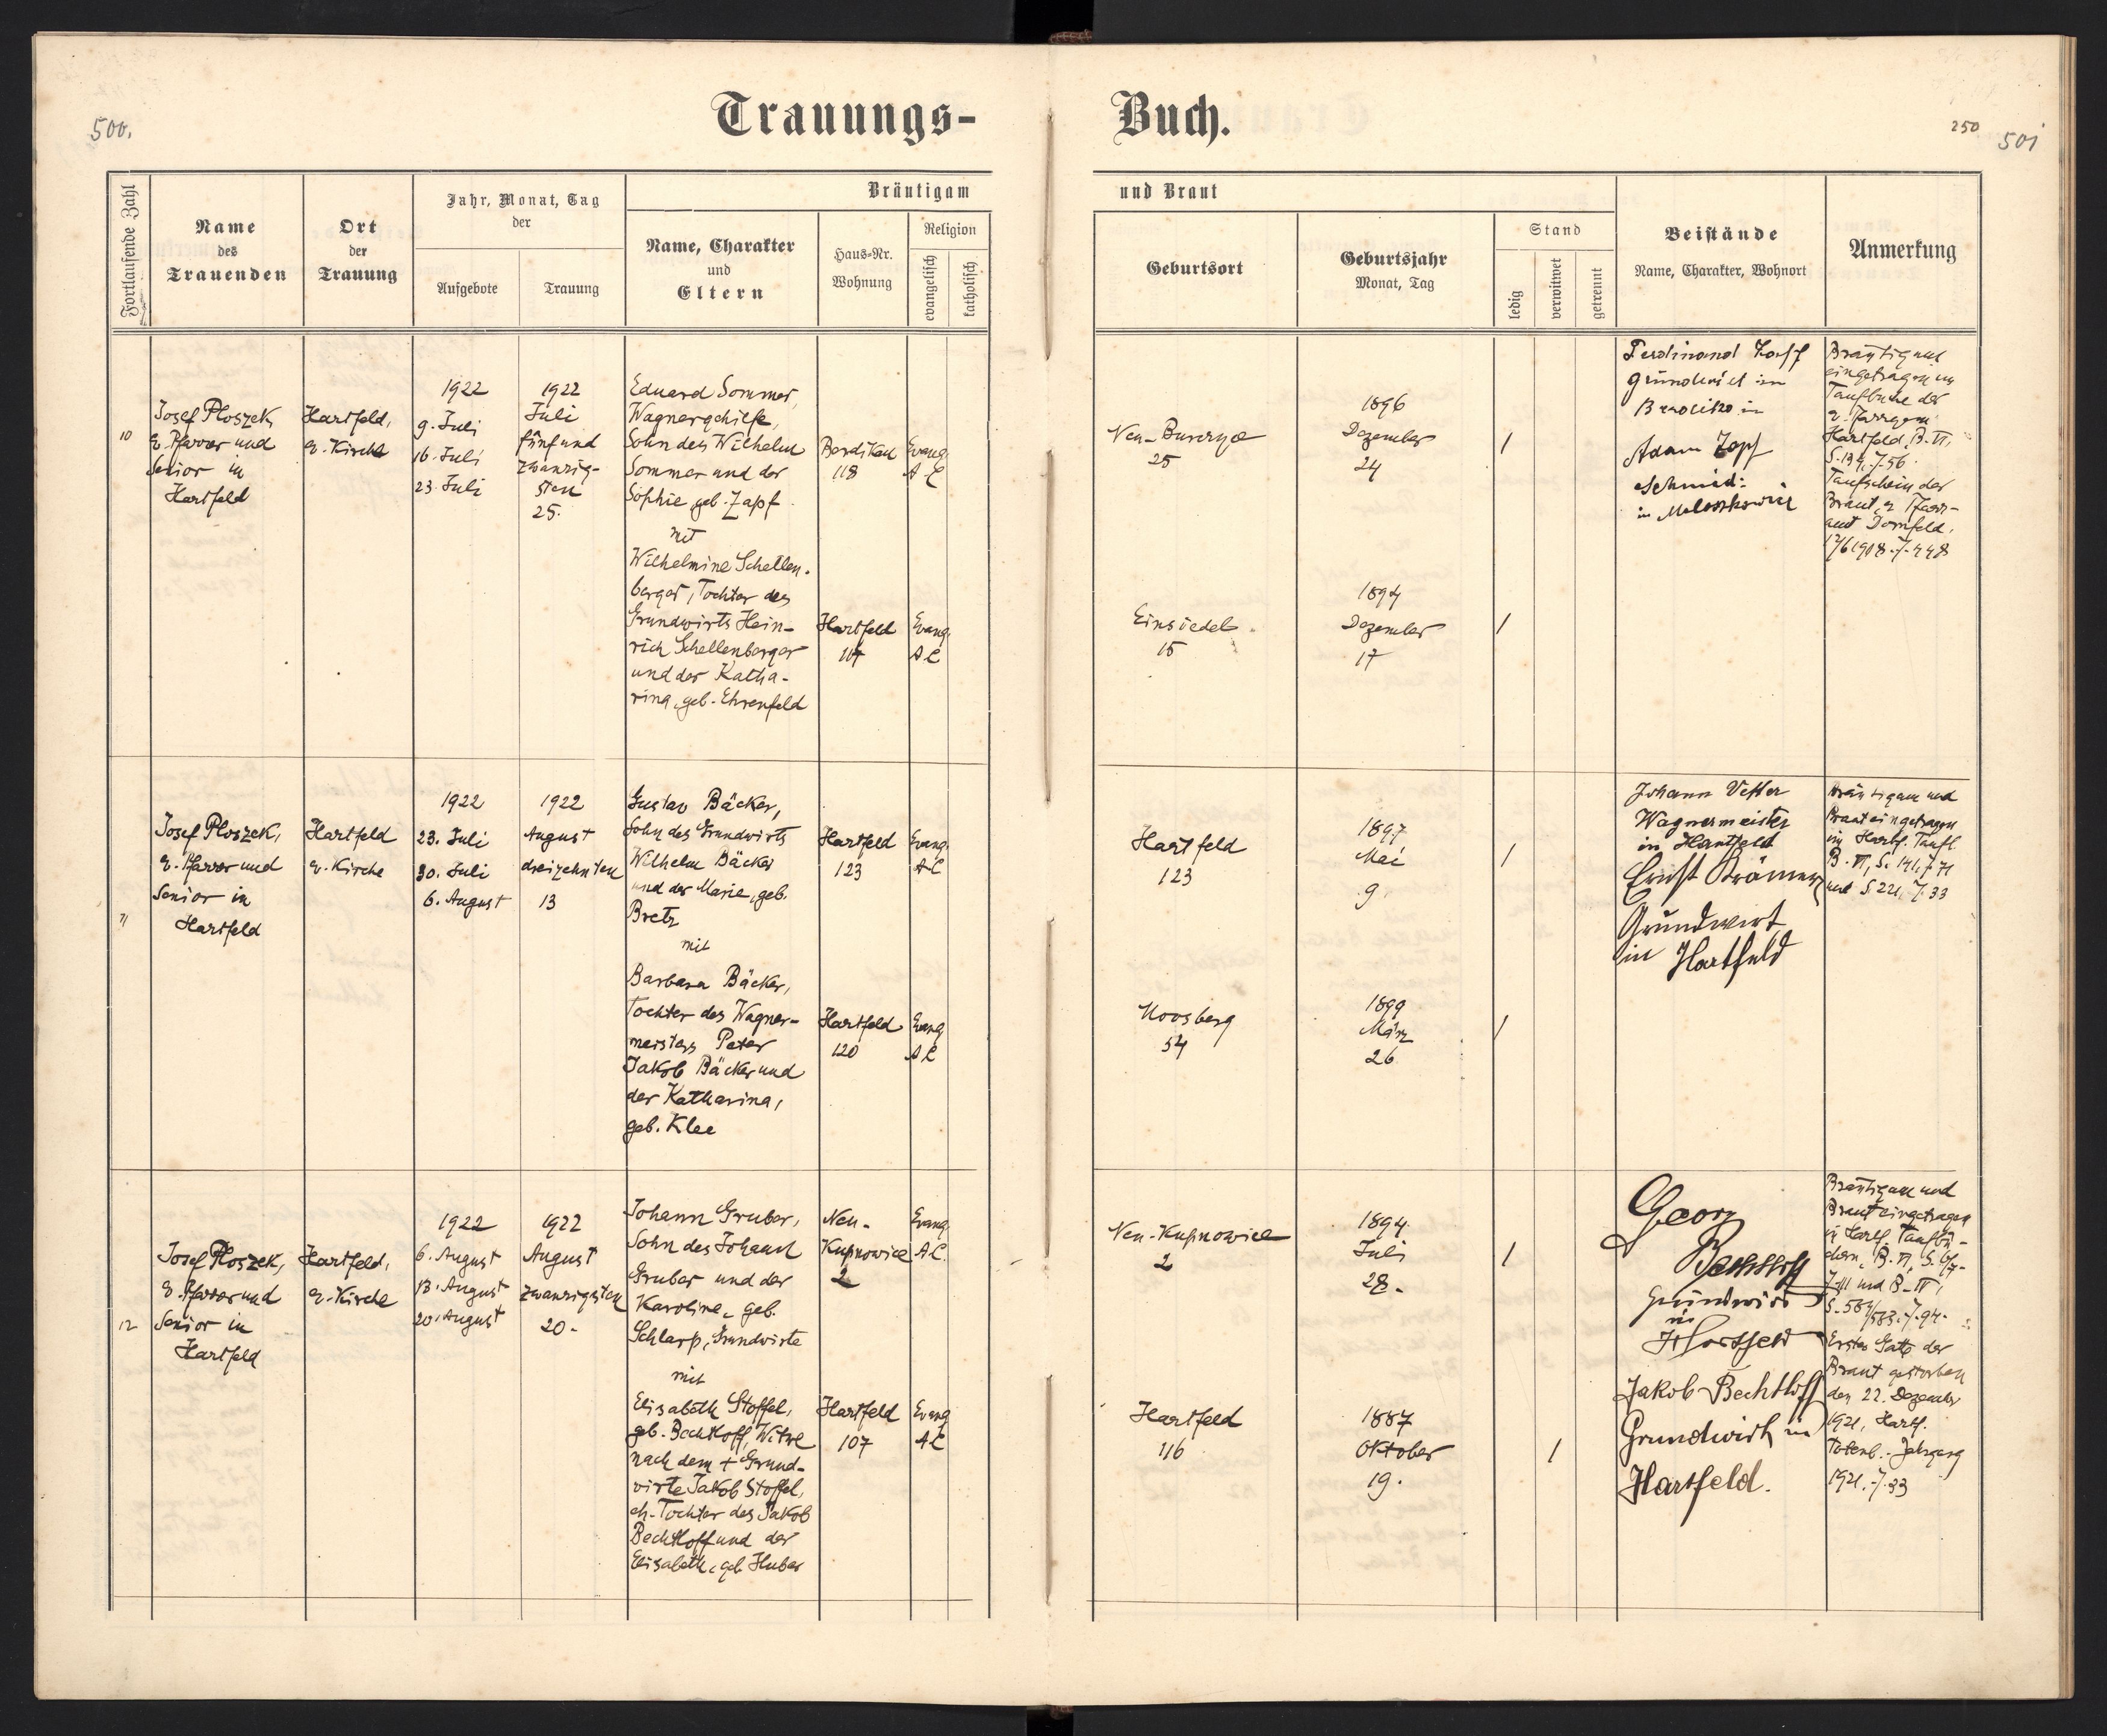 500.
Trauungs-
Buch.
250
501
Fortlaufende Zahl
Name
des
Trauenden
Ort
der
Trauung
Jahr, Monat, Tag
der
Aufgebote
Trauung
Bräutigam
Name, Charakter
und
Eltern
Haus-Nr.
Wohnung
Religion
evangelisch
katholisch
und Braut
Geburtsort
Geburtsjahr
Monat, Tag
Stand
ledig
verwitwet
getrennt
Beistände
Name, Charakter, Wohnort
Anmerkung
10
Josef Ploszek,
e. Pfarrer und
Senior in
Hartfeld
Hartfeld,
e. Kirche
1922
9. Juli
16. Juli
23. Juli
1922
Juli
fünfund
zwanzig-
sten
25.
Eduard Sommer,
Wagnergehilfe,
Sohn des Wilhelm
Sommer und der
Sophie, geb. Zapf
mit
Wilhelmine Schellen-
berger, Tochter des
Grundwirts Hein-
rich Schellenberger
und der Katha-
rina, geb. Ehrenfeld
Berdikau
118
Evang.
A C
Hartfeld
117
Evang.
A C
Neu-
25
Einsiedel
15
1896
Dezember
24
1894
Dezember
17
/
/
Ferdinand Zapf
Grundwirt in
in
Adam Zopf
Schmid:
in
Bräutigam
eingetragen im
Taufbuche der
e. Pfarrgem.
Hartfeld, B. VI,
S. 134, Z. 56.
Taufschein der
Braut, e. Pfarr-
amt Dornfeld,
17/6 1908. Z. 448
11
Josef Ploszek,
e. Pfarrer und
Senior in
Hartfeld
Hartfeld
e. Kirche
1922
23. Juli
30. Juli
6. August
1922
August
dreizehnten
13
Gustav Bäcker,
Sohn des Grundwirts
Wilhelm Bäcker
und der Marie, geb.
Bretz
mit
Barbara Bäcker,
Tochter des Wagner-
meisters Peter
Jakob Bäcker und
der Katharina,
geb. Klee
Hartfeld
123
Evang.
A C
Hartfeld
120
Evang
A C
Hartfeld
123
Moosberg
54
1897
Mai
9.
1899
März
26
/
/
Johann Vetter
Wagnermeister
in Hartfeld
Ernst Krämer
Grundwirt
in Hartfeld
Bräutigam und
Braut eingetragen
im Hartf. Taufb.
B. VI, S. 141, Z. 71
und S 221, Z. 33
12
Josef Ploszek,
e. Pfarrer und
Senior in
Hartfeld
Hartfeld,
e. Kirche
1922
6. August
13. August
20. August
1922
August
zwanzigsten
20-
Johann Gruber,
Sohn des Johann
Gruber und der
Karoline, geb.
Schlarp, Grundwirte
mit
Elisabeth Stoffel,
geb. Bechtloff, Witwe
nach dem + Grund-
wirte Jakob Stoffel,
eh. Tochter des Jakob
Bechtloff und der
Elisabeth, geb Huber
Neu-
Kupnowice
2
Evang
A C.
Hartfeld
107
Evang
A C
Neu-Kupnowice
2
Hartfeld
116
1894
Juli
28.
1887
Oktober
19.
/
/
Georg
Bechtloff
Grundwirt
in
Hartfeld
Jakob Bechtloff
Grundwirth in
Hartfeld.
Bräutigam und
Braut eingetragen
in Hartf. Taufbü-
chern, B. VI, S.
und B.
Erster Gatte der
Braut gestorben
den 22. Dezember
1921, Hartf.
Totenb. Jahrgang
1921, Z. 33